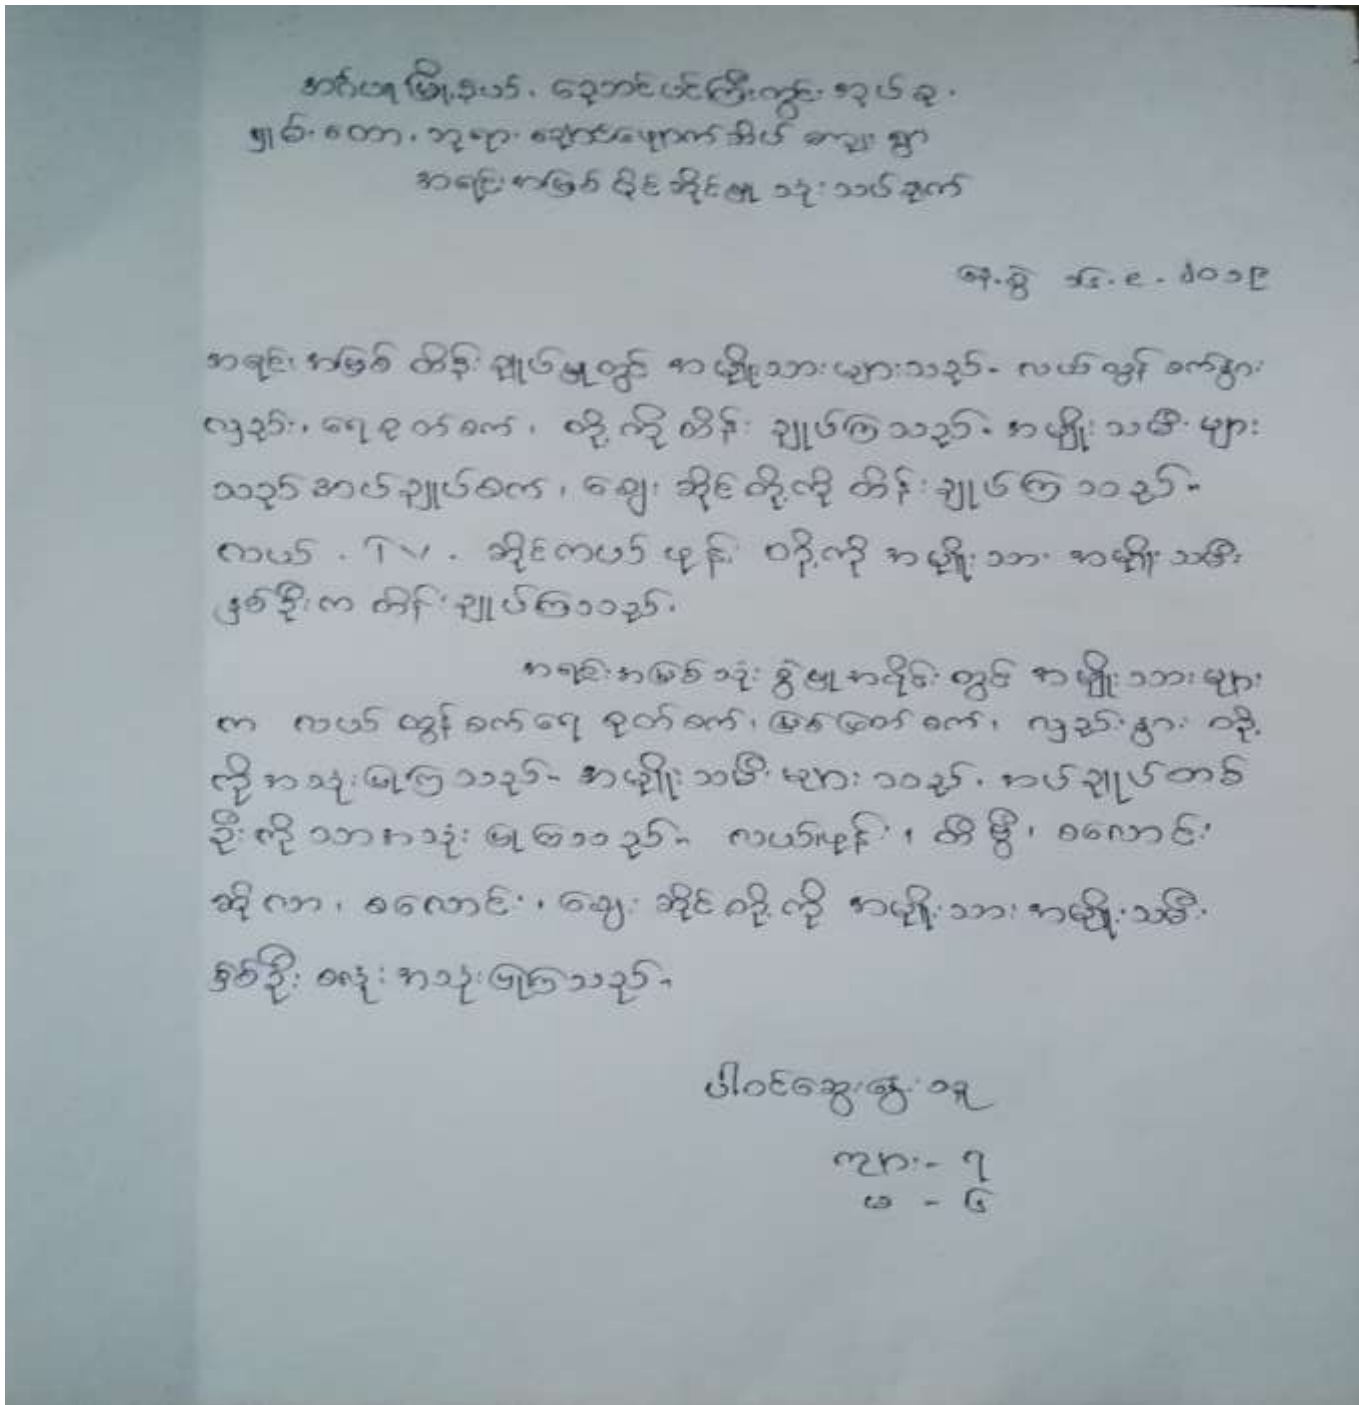 အင်္ဂပူမြို့နယ်၊ ညောင်ပင်ကြီးကွင်း အုပ်စု၊
ရှမ်းတော၊ ဘုရား ကျေးရွာ
အရင်းအမြစ် ပိုင်ဆိုင်မှု သုံးသပ်ချက်
နေ့စွဲ ၁၆.၉.၂၀၁၉
အရင်းအမြစ် ထိန်းချုပ်မှုတွင် အမျိုးသားများသည်- လယ်ထွန်စက်နွား
လှည်း၊ ရေစုတ်စက်၊ တို့ကိုထိန်း ချုပ်ကြသည်- အမျိုးသမီးများ
သည်အပ်ချုပ်စက်၊ ဈေးဆိုင်တို့ကို ထိန်းချုပ်ကြသည်-
လယ်၊ TV၊ ဆိုင်ကယ် ဖုန်း တို့ကို အမျိုးသား အမျိုးသမီး
နှစ်ဦးက ထိန်းချုပ်ကြသည်။
အရင်းအမြစ်သုံးစွဲမှုအပိုင်းတွင် အမျိုးသားများ
က လယ်ထွန်စက်ရေစုတ်စက်၊ မြစ်မြတ်စက်၊ လှည်းနွား တို့
ကိုအသုံးပြုကြသည်- အမျိုးသမီးများသည်၊ အပ်ချုပ်တစ်
ဦးကိုသာအသုံးပြုကြသည်- လယ်၊ဖုန်း၊ တီဗွီ၊ စလောင်း
ဆိုလာ၊ စလောင်း၊ ဈေးဆိုင်တို့ကို အမျိုးသားအမျိုးသမီး
နှစ်ဦး စလုံးအသုံးပြုကြသည်-
ပါဝင်ဆွေးနွေးသူ
ကျား- ၇
မ - ၆